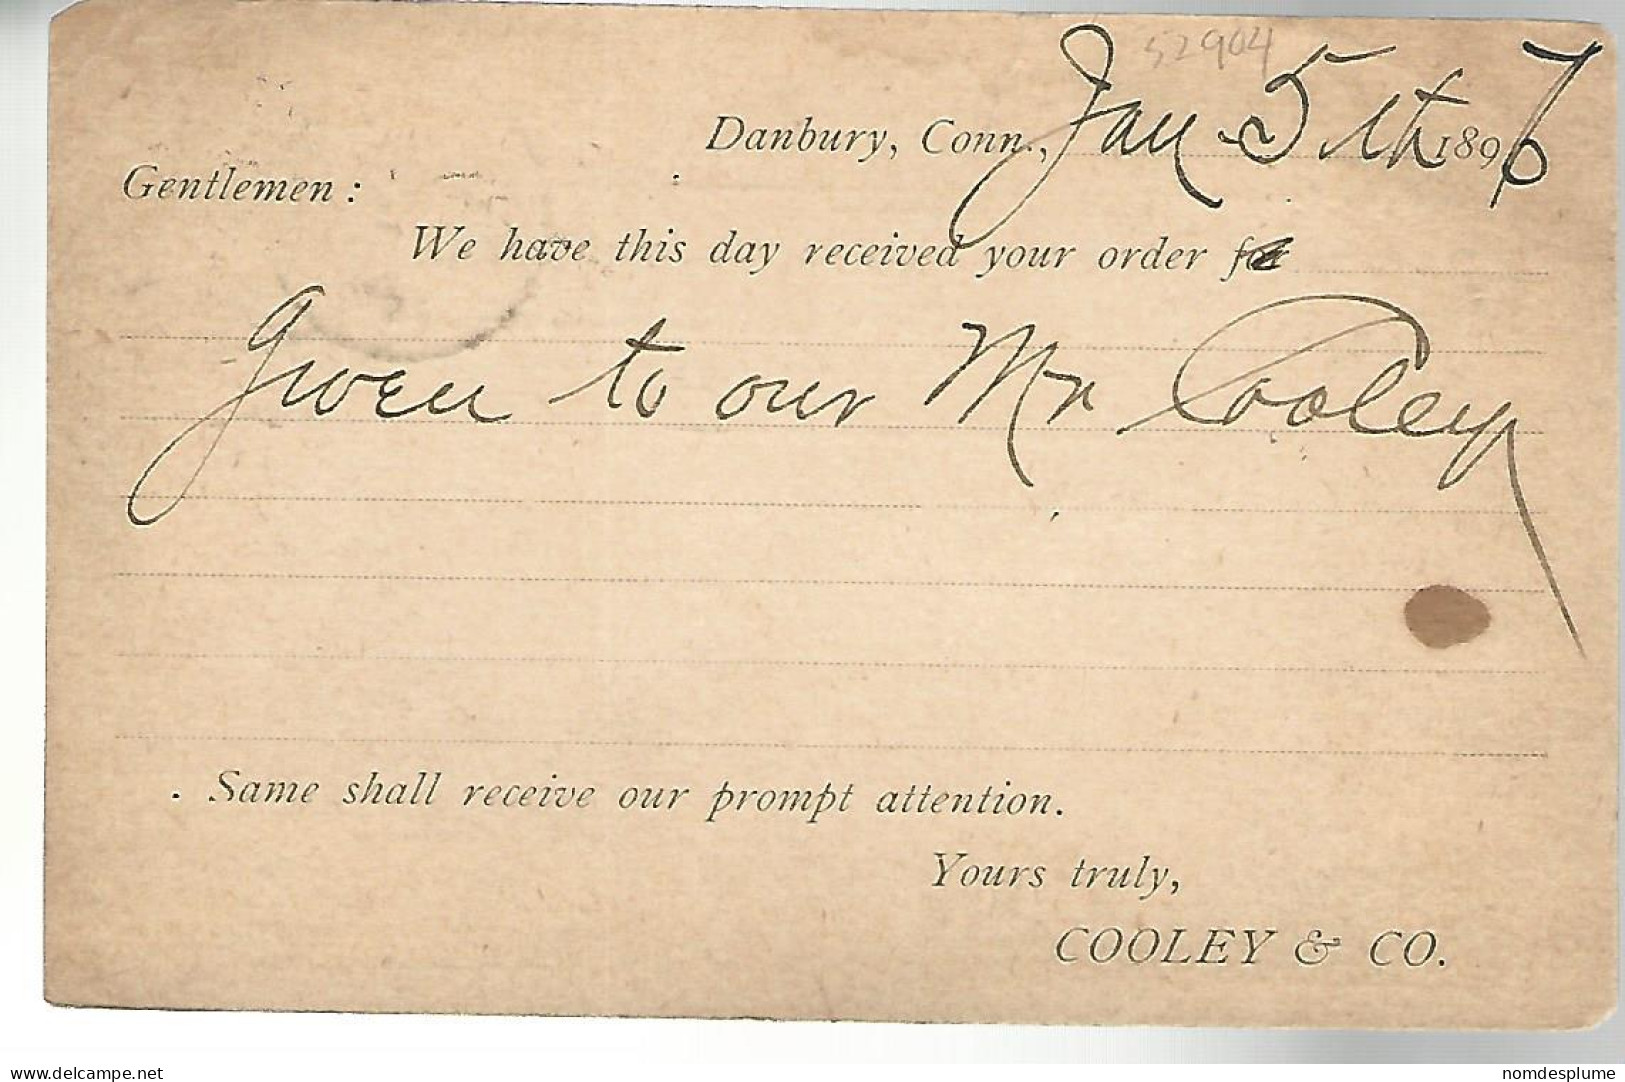 52904
Danbury, Conn., Jan 5th 1896
Gentlemen:
We have this day received your order
Given to our Mr Cooley
Same shall receive our prompt attention.
Yours truly,
COOLEY & CO.
www.delcampe.net
nomdesplume